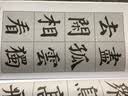 去閑相看
盡孤雲獨